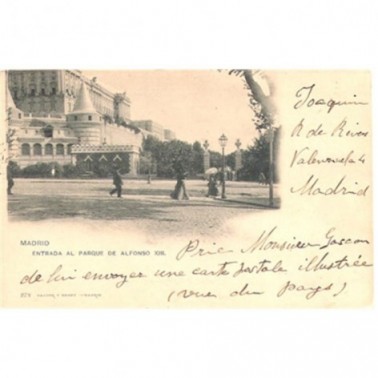 Joaquin
R de Rivas
Madrid
MADRID
ENTRADA AL PARQUE DE ALFONSO XIII.
Prie Monsieur Gascon
de lui envoyer une carte postale illustrée
(vue du pays)